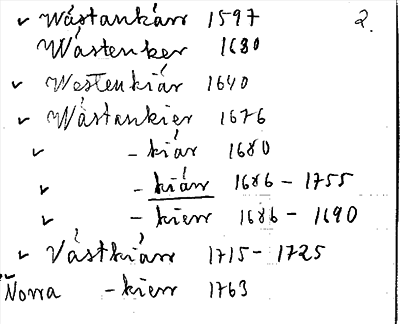 ✓ Wástankárr 1597 2.
Wástenker 1630
✓ Westenkiár 1640
✓ Wástankier 1676
✓ - kiár 1680
✓ - kiárr 1686 - 1755
✓ - kierr 1686 - 1690
✓ Västkiärr 1715 - 1725
Norra - kierr 1763